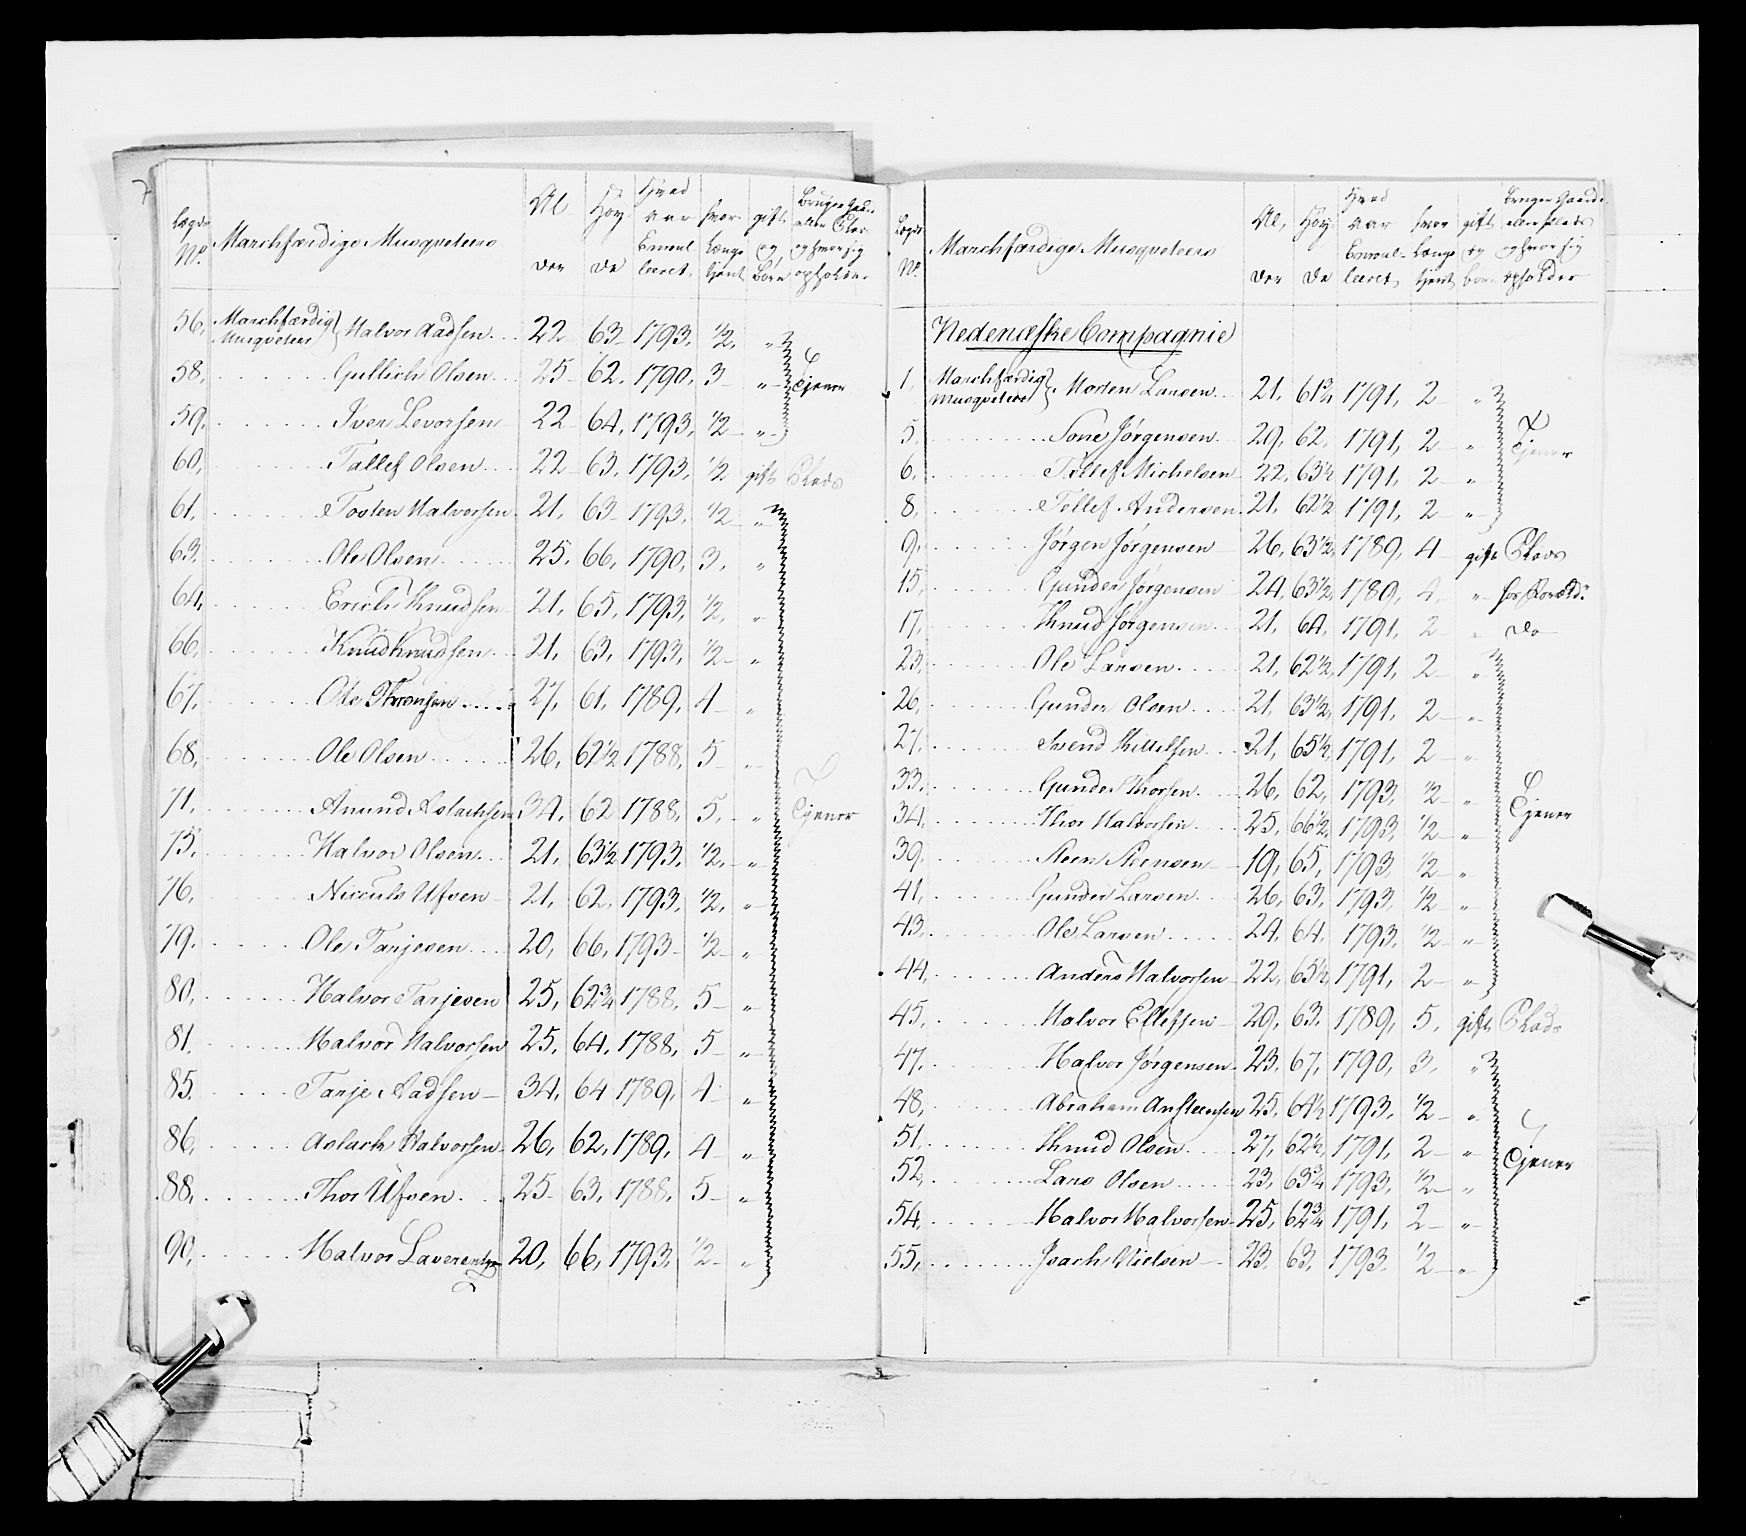 7
Lægds No. Marchfærdige Musqveteers Al der Høy de Hvad aar Enroulleeret, hvor Længe tjent gift og Børn Bruger Gaard eller Plads og hvor sig opholder
56, Marchfærdig Musqveteer } Halvor Aadsen... 22 63 1793, ½, "
58, Gullich Olsen... 25 62, 1790, 3 " Tjener
59, Iver Levorsen 22 64, 1793, ½ "
60, Tallef Olsen... 22 63, 1793, ½ gift Plads
61, Tosten Halvorsen 21, 63 1793, ½ "
63, Ole Olsen... 25, 66, 1790, 3, "
64, Erich Knudsen 21, 65, 1793, ½, "
66, Knud Knudsen... 21, 63, 1793, ½ "
67, Ole Thronsen... 27, 61, 1789, 4 "
68, Ole Olsen... 26, 61½ 1788, 5 "
71, Anund Aslachsen 34, 62 1788, 5, " Tjener
75, Halvor Olsen... 21, 63½ 1793, ½, "
76, Niculs Ufsen 21, 62, 1793, ½, "
79, Ole Tarjesen... 20, 66, 1793 ½ "
80, Halvor Tarjesen 25, 62¾ 1788, 5 "
81, Halvor Halvorsen 25, 64, 1788, 5 "
85, Tarje Aadsen 34, 64 1789, 4 "
86, Aslach Halvorsen 26, 62, 1789, 4 "
88, Thor Ufsen... 25 63, 1788, 5 "
90, Halvor Laverentz 20, 66, 1793, ½ "
Lægds No. Marchfærdige Musqveteers Al, der Høy de Hvad aar Enroulleeret, hvor Længe tjent gift og børn Bruger Gaard eller Plads og hvor sig opholder
Nedenæske Compagnie
1, Marchfærdig Musqveteer } Morten Larsen... 21, 61¾, 1791, 2 "
5, Sone Jørgensen... 29, 62, 1791, 2 " Tjener
6, Tellef Michelsen 22, 63½ 1791, 2 "
8, Tellef Andersen 21, 62½ 1791, 2 "
9, Jørgen Jørgensen 26, 63½, 1789, 4 gift Plads
15, Gunder Jørgensen 24, 63½, 1789, 4, " hos Foræld:
17, Knud Jørgensen... 21, 64, 1791, 2 " do
23, Ole Larsen... 21, 62½, 1791, 2 "
26, Gunder Olsen... 21, 63½, 1791, 2 "
27, Svend Kittelsen... 21, 65½, 1791, 2 "
33, Gunder Thorsen... 26, 62, 1793, ½ " Tjener
34, Thor Halvorsen... 25, 66½, 1793, ½ "
39, Steen Steensen 19, 65, 1793, ½ "
41, Gunder Larsen... 26, 63, 1793, ½ "
43, Ole Larsen... 24, 64, 1793, ½ "
44, Anders Halvorsen 22, 65½, 1791, 2 "
45, Halvor Ellefsen 29, 63, 1789, 5, gift Plads
47, Halvor Jørgensen 23, 67, 1790, 3, "
48, Abraham Ansteensen 25, 64½ 1793, ½ "
51, Knud Olsen... 27, 62½, 1791, 2 " Tjener
52, Lars Olsen... 23, 63¾ 1793, ½ "
54, Halvor Halvorsen 25, 62¾ 1791, 2 "
55, Isach Nielsen 23, 63, 1793, ½ "